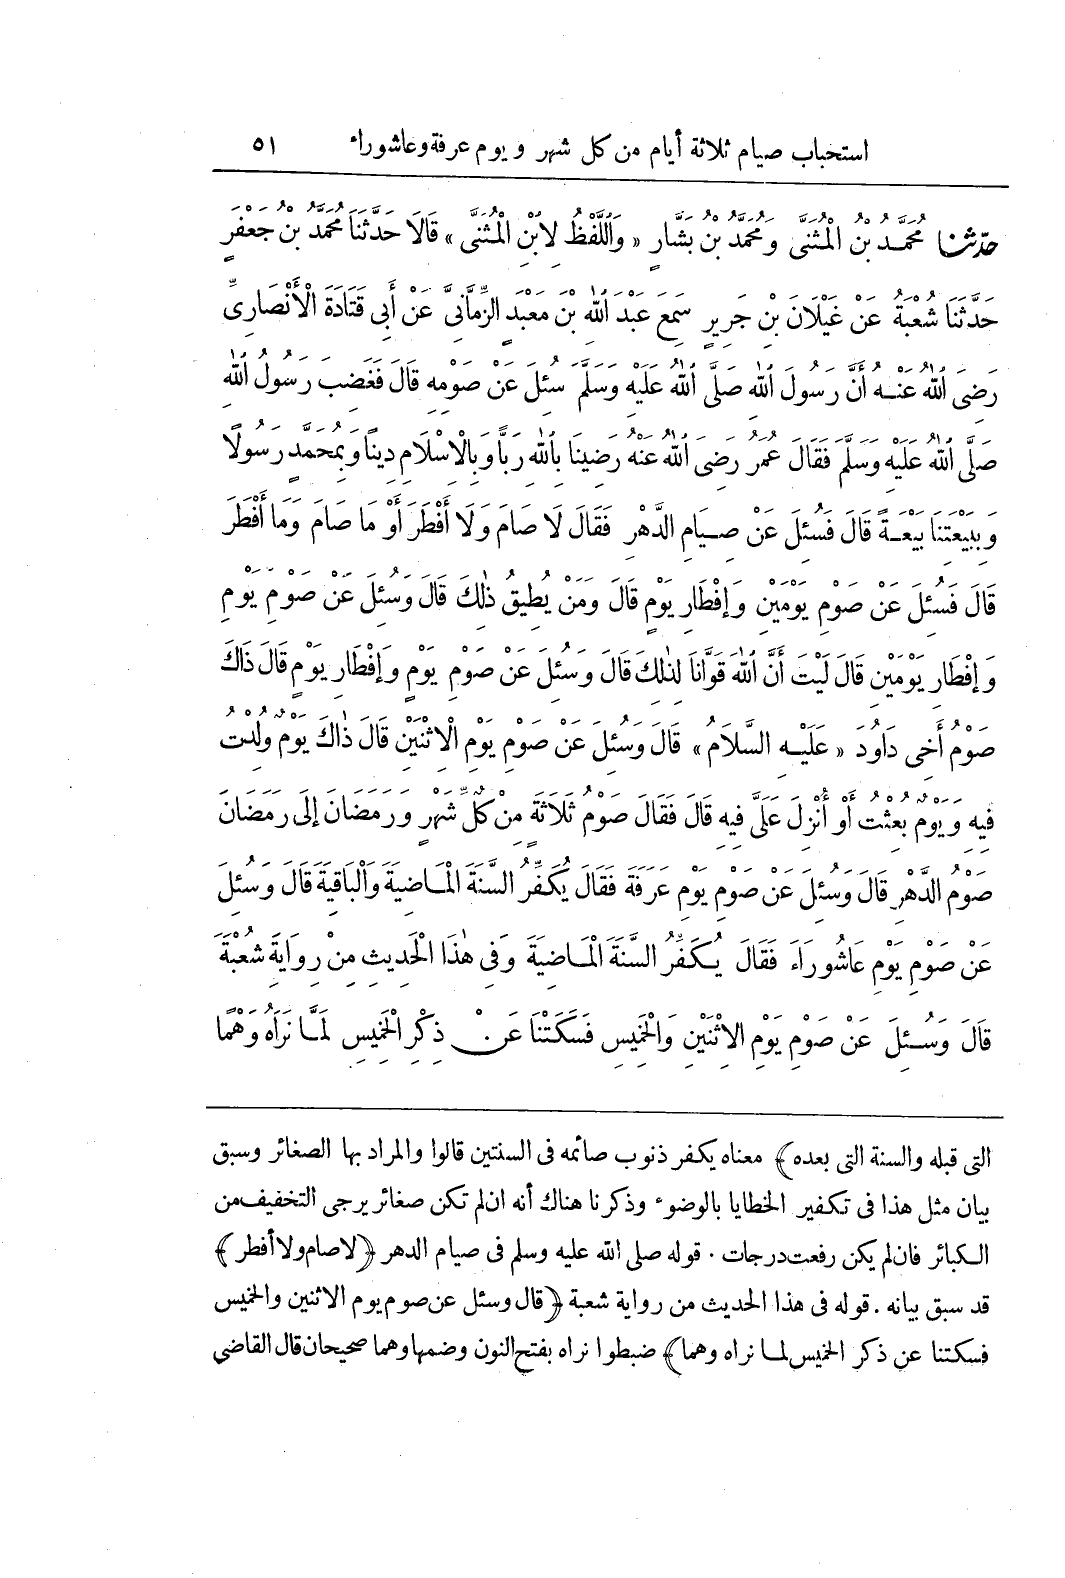 استحباب صيام ثلاثة أيام من كل شهر ويوم عرفة وعاشوراء ٥١
حدّثنا مُحَمَّدُ بْنُ الْمُثَنَّى وَمُحَمَّدُ بْنُ بَشَّارٍ «وَاللَّفْظُ لِابْنِ الْمُثَنَّى» قَالَا حَدَّثَنَا مُحَمَّدُ بْنُ جَعْفَرٍ
حَدَّثَنَا شُعْبَةُ عَنْ غَيْلَانَ بْنِ جَرِيرٍ سَمِعَ عَبْدَ اللهِ بْنَ مَعْبَدٍ الزِّمَّانِيَّ عَنْ أَبِي قَتَادَةَ الْأَنْصَارِيِّ
رَضِيَ اللهُ عَنْهُ أَنَّ رَسُولَ اللهِ صَلَّى اللهُ عَلَيْهِ وَسَلَّمَ سُئِلَ عَنْ صَوْمِهِ قَالَ فَغَضِبَ رَسُولُ اللهِ
صَلَّى اللهُ عَلَيْهِ وَسَلَّمَ فَقَالَ عُمَرُ رَضِيَ اللهُ عَنْهُ رَضِينَا بِاللهِ رَبًّا وَبِالْاسْلَامِ دِينًا وَبِمُحَمَّدٍ رَسُولًا
وَبِبَيْعَتِنَا بَيْعَةً قَالَ فَسُئِلَ عَنْ صِيَامِ الدَّهْرِ فَقَالَ لَا صَامَ وَلَا أَفْطَرَ أَوْ مَا صَامَ وَمَا أَفْطَرَ
قَالَ فَسُئِلَ عَنْ صَوْمِ يَوْمَيْنِ وَإِفْطَارِ يَوْمٍ قَالَ وَمَنْ يُطِيقُ ذٰلِكَ قَالَ وَسُئِلَ عَنْ صَوْمِ يَوْمٍ
وَإِفْطَارِ يَوْمَيْنِ قَالَ لَيْتَ أَنَّ اللهَ قَوَّانَا لِذٰلِكَ قَالَ وَسُئِلَ عَنْ صَوْمِ يَوْمٍ وَإِفْطَارِ يَوْمٍ قَالَ ذَاكَ
صَوْمُ أَخِي دَاوُدَ «عَلَيْهِ السَّلَامُ» قَالَ وَسُئِلَ عَنْ صَوْمِ يَوْمِ الْاثْنَيْنِ قَالَ ذَاكَ يَوْمٌ وُلِدْتُ
فِيهِ وَيَوْمٌ بُعِثْتُ أَوْ أُنْزِلَ عَلَيَّ فِيهِ قَالَ فَقَالَ صَوْمُ ثَلَاثَةٍ مِنْ كُلِّ شَهْرٍ وَرَمَضَانَ إِلَى رَمَضَانَ
صَوْمُ الدَّهْرِ قَالَ وَسُئِلَ عَنْ صَوْمِ يَوْمِ عَرَفَةَ فَقَالَ يُكَفِّرُ السَّنَةَ الْمَاضِيَةَ وَالْبَاقِيَةَ قَالَ وَسُئِلَ
عَنْ صَوْمِ يَوْمِ عَاشُورَاءَ فَقَالَ يُكَفِّرُ السَّنَةَ الْمَاضِيَةَ وَفِي هٰذَا الْحَدِيثِ مِنْ رِوَايَةِ شُعْبَةَ
قَالَ وَسُئِلَ عَنْ صَوْمِ يَوْمِ الْاثْنَيْنِ وَالْخَمِيسِ فَسَكَتْنَا عَنْ ذِكْرِ الْخَمِيسِ لَمَّا نَرَاهُ وَهْمًا
التى قبله والسنة التى بعده﴾ معناه يكفر ذنوب صائمه فى السنتين قالوا والمراد بها الصغائر وسبق
بيان مثل هذا فى تكفير الخطايا بالوضوء وذكرنا هناك أنه ان لم تكن صغائر يرجى التخفيف من
الكبائر فان لم يكن رفعت درجات . قوله صلى الله عليه وسلم فى صيام الدهر ﴿لا صام ولا أفطر﴾
قد سبق بيانه . قوله فى هذا الحديث من رواية شعبة ﴿قال وسئل عن صوم يوم الاثنين والخميس
فسكتنا عن ذكر الخميس لما نراه وهما﴾ ضبطوا نراه بفتح النون وضمها وهما صحيحان قال القاضى